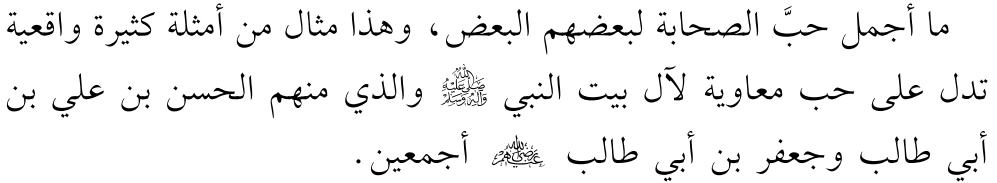 ما أجمل حبَّ الصحابة لبعضهم البعض، وهذا مثال من أمثلة كثيرة واقعية
تدل على حب معاوية لآل بيت النبي صلى الله عليه وآله وسلم والذي منهم الحسن بن علي بن
أبي طالب وجعفر بن أبي طالب رضي الله عنهم أجمعين.